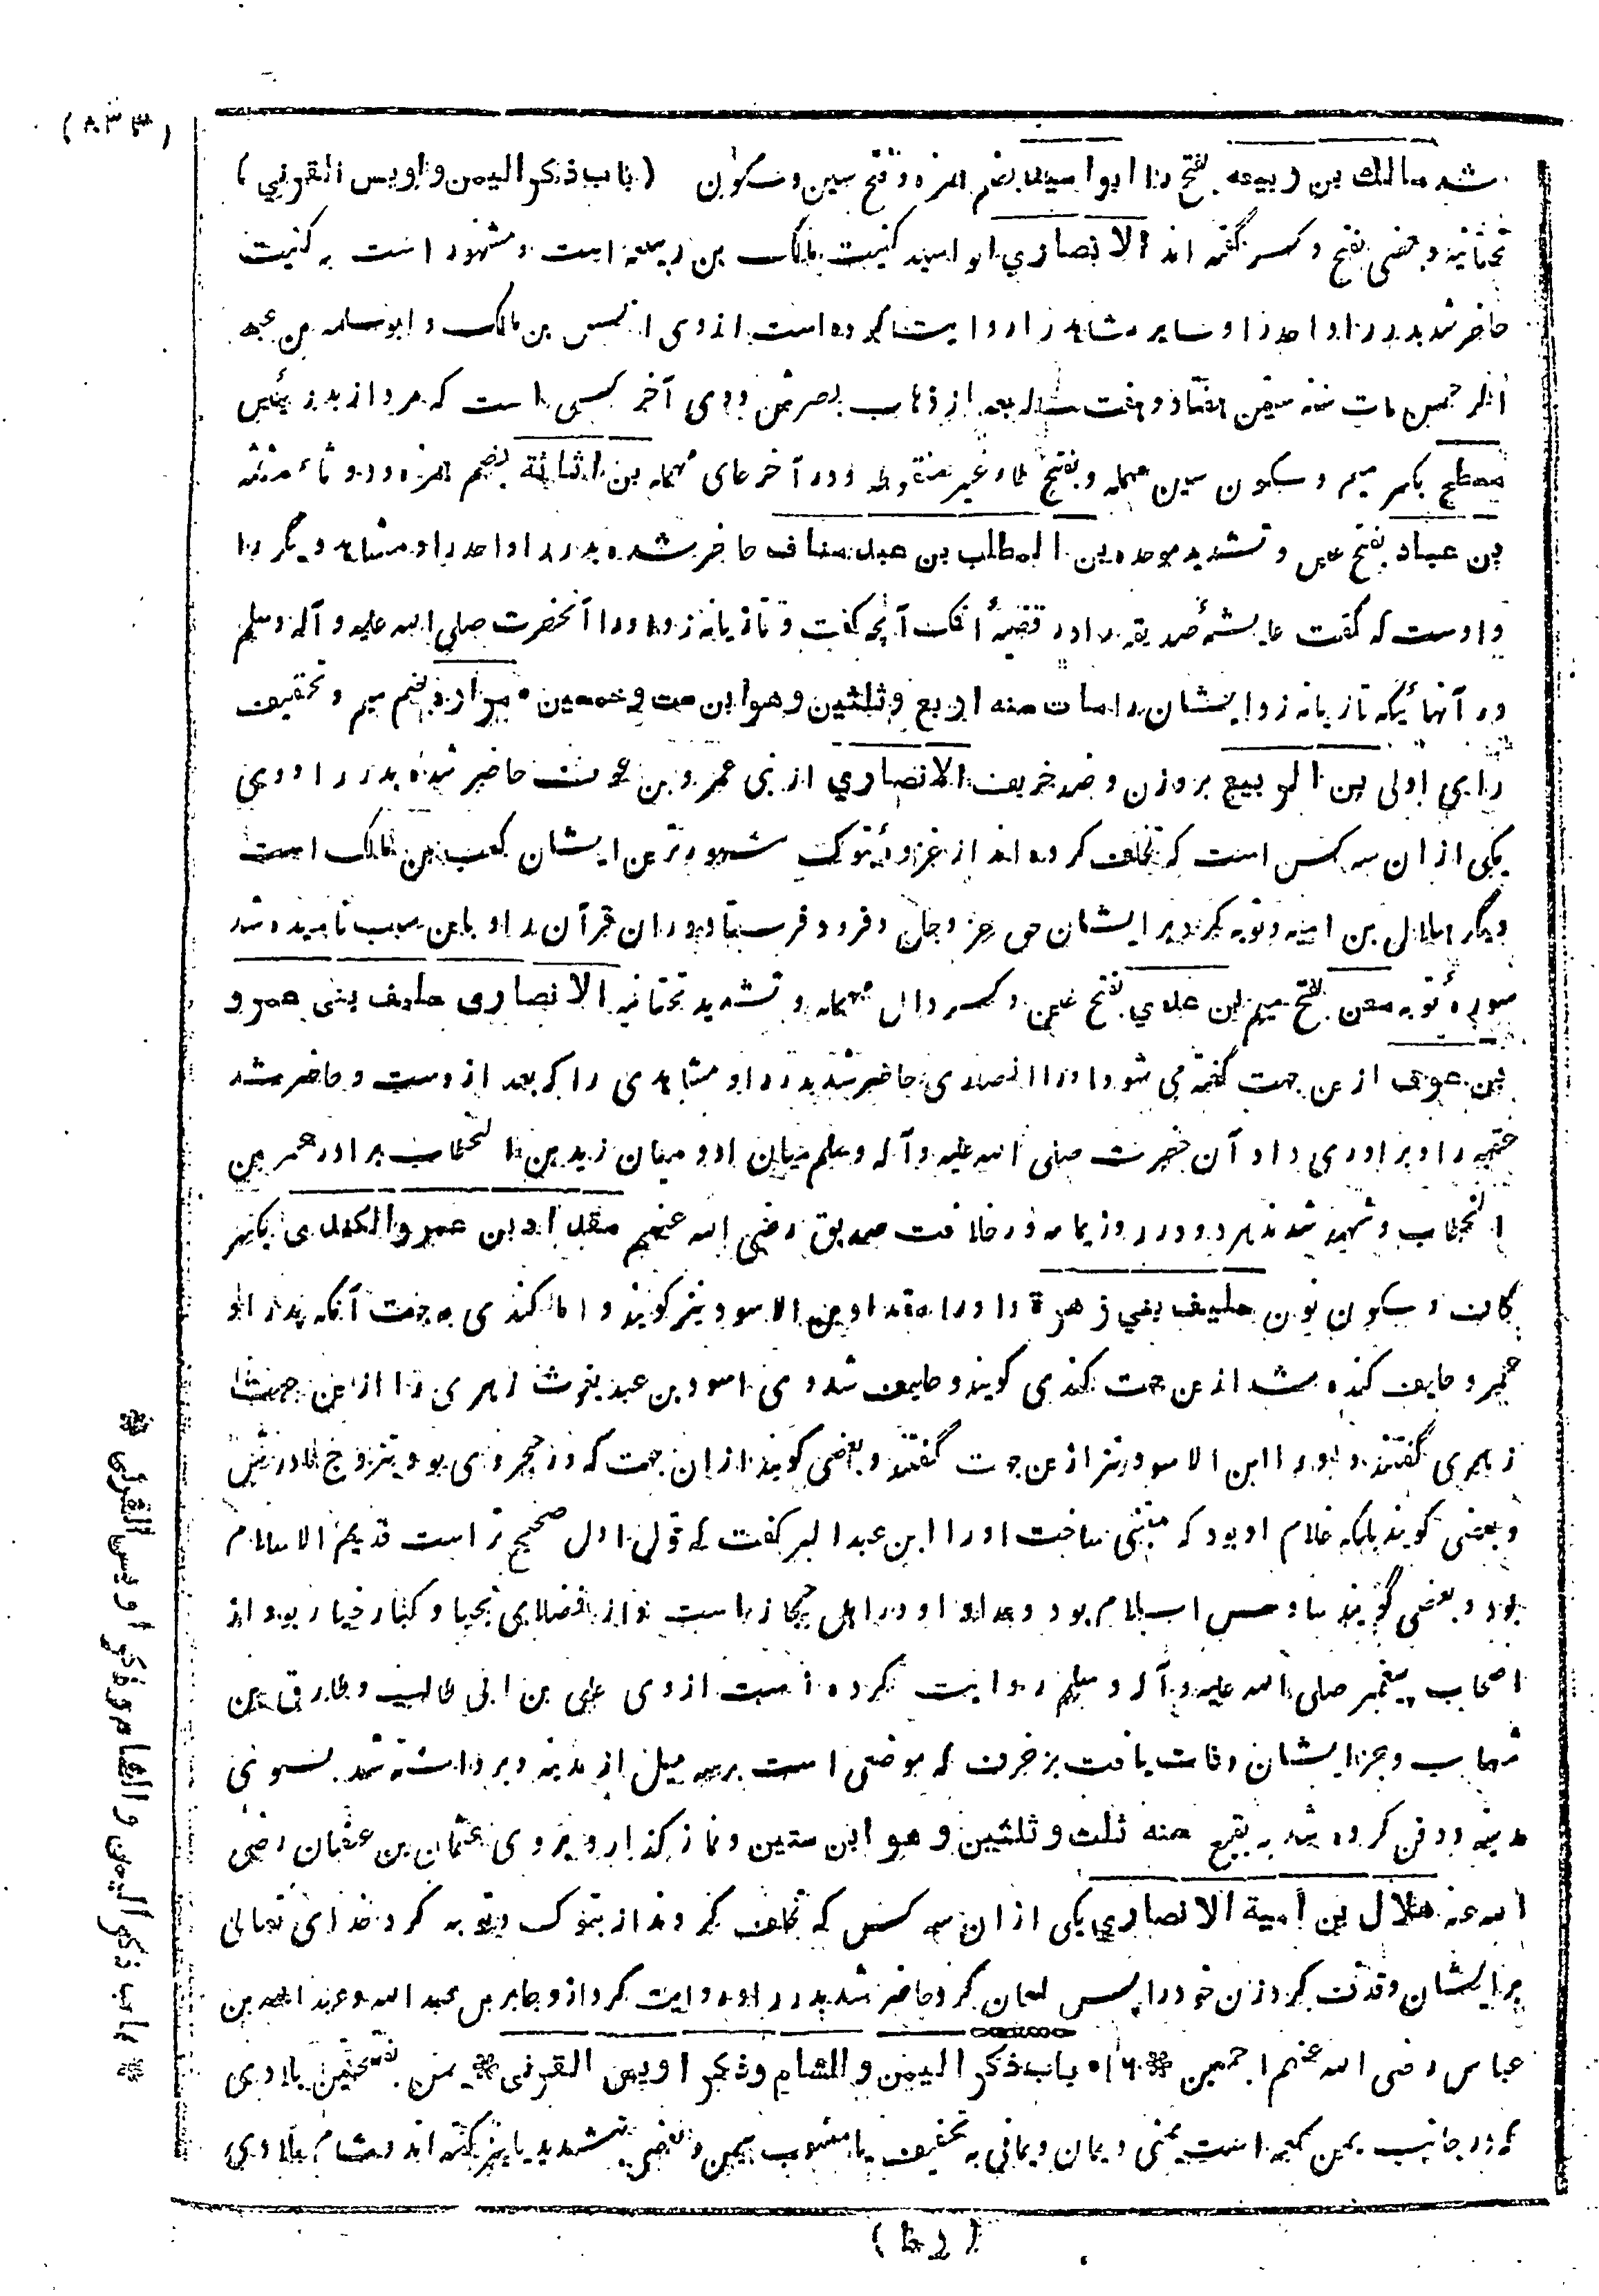 (باب ذكر اليمن واويس القرني) (۸۳۳)
شد مالك بن ربيعه بفتح را ابو اسيد بضم همزه وفتح سين وسكون
تحتانيه وبعضى بفتح وكسر گفته اند الانصاري ابو اسيد كنيت مالك بن ربيعه است ومشهور است به كنيت
حاضر شد بدر را واحد را وساير مشاهد را روايت كرده است از وى انس بن مالك وابو سلمه بن عبد
الرحمن مات سنه ستين هفتاد وهفت ساله بعد از ذهاب بصرش ووى آخر كسى است كه مرد از بدريين
مسطح بكسر ميم وسكون سين مهمله وبفتح طاء غير منقوطه ودر آخر حاى مهمله بن اثاثة بضم همزه ودو ثاء مثلثه
بن عباد بفتح عين وتشديد موحده بن المطلب بن عبد مناف حاضر شده بدر را واحد را ومشاهد ديگر را
واوست كه گفت عايشه صديقه را در قضيه افك آنچه گفت وتازيانه زد او را آنحضرت صلى الله عليه وآله وسلم
در آنهائيكه تازيانه زد ايشان را مات سنه اربع وثلثين وهو ابن ست وخمسين • مراره بضم ميم وتخفيف
راى اولى بن الربيع بر وزن وضد خريف الانصاري از بنى عمرو بن عوف حاضر شده بدر را ووى
يكى از ان سه كس است كه تخلف كرده اند از غزوه تبوك مشهورترين ايشان كعب بن مالك است
ديگر هلال بن اميه وتوبه كرد بر ايشان حق عز وجل وفرود فرستاد در ان قرآن را وباين سبب ناميده شد
سوره توبه معن بفتح ميم بن عدي بفتح عين وكسر دال مهمله وتشديد تحتانيه الانصاري حليف بنى عمرو
بن عوف از ين جهت گفته مى شود او را انصارى حاضر شد بدر را ومشاهدى را كه بعد از وست وحاضر شد
عقبه را وبرادرى داد آن حضرت صلى الله عليه وآله وسلم ميان او وميان زيد بن الخطاب برادر عمر بن
الخطاب وشهيد شدند هر دو در روز يمامه در خلافت صديق رضى الله عنهم مقداد بن عمرو الكندى بكسر
كاف وسكون نون حليف بني زهرة واو را مقداد بن الاسود نيز گويند واما كندى به جهت آنكه پدر او
عمرو حليف كنده شد از ين جهت كندى گويند وحليف شد وى اسود بن عبد يغوث زهرى را از ين جهت
زهرى گفتند واو را ابن الاسود نيز از ين جهت گفتند وبعضى گويند از ان جهت كه در حجر وى بود بتزوج مادرش
وبعضى گويند بلكه غلام او بود كه متبنى ساخت او را ابن عبد البر گفت كه قول اول صحيح تر است قديم الاسلام
بود وبعضى گويند سادس اسلام بود وعداد او در اهل حجاز است واز فضلاى نجبا وكبار خيار بود از
اصحاب پيغمبر صلى الله عليه وآله وسلم روايت كرده است از وى على بن ابى طالب وطارق بن
شهاب وجز ايشان وفات يافت بزجرف كه موضعى است بر سه ميل از مدينه وبرداشته شد بسوى
مدينه ودفن كرده شد به بقيع سنه ثلث وثلثين وهو ابن ستين ونماز گذارد بر وى عثمان بن عفان رضى
الله عنه هلال بن أمية الانصاري يكى از ان سه كس كه تخلف كردند از تبوك وتوبه كرد خداى تعالى
بر ايشان وقذف كرد زن خود را پس لعان كرد حاضر شد بدر را وروايت كرد از و جابر بن عبد الله وعبد الله بن
عباس رضى الله عنهم اجمعين * ۱۶ • باب ذكر اليمن والشام وذكر اويس القرنى * يمن بفتحتين بلادى
كه در جانب يمين كعبه است يمنى ويمان ويمانى به تخفيف يا منسوب بيمن وبعضى بتشديد يا نيز گفته اند وشام بلادى
* باب ذكر اليمن والشام وذكر اويس القرنى *